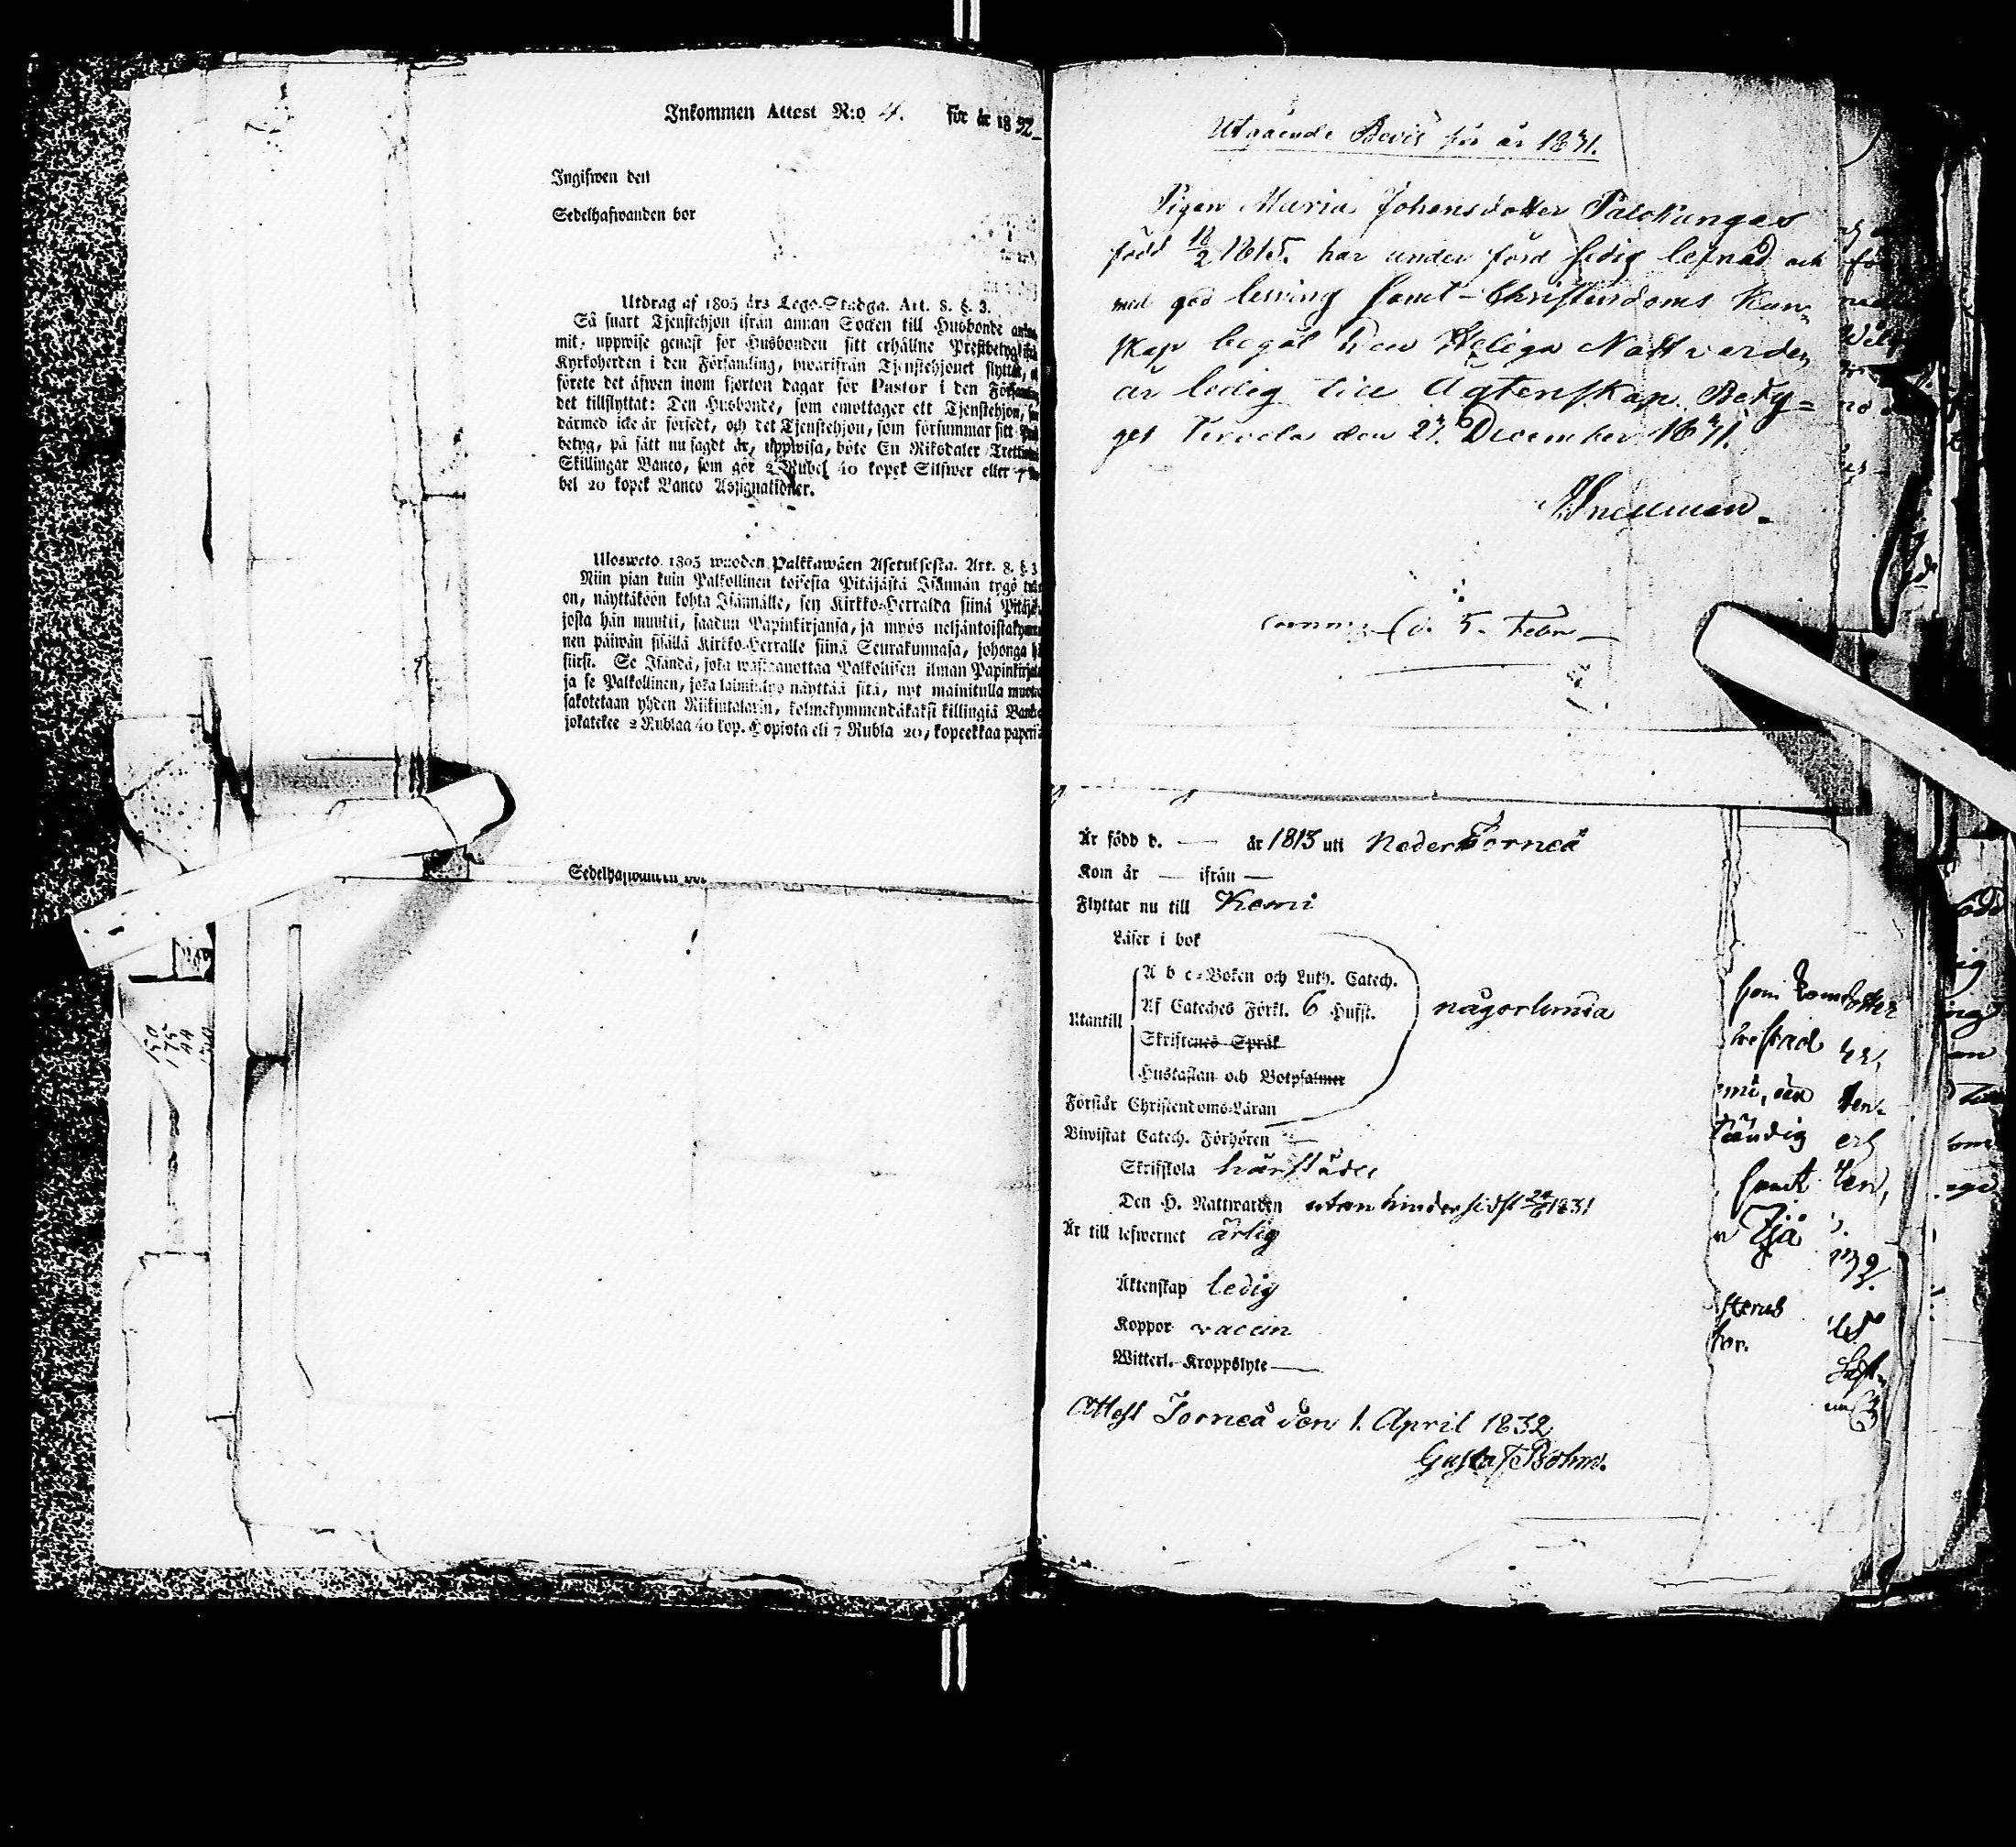 Inkommen Attest N:o 4. För år 1832
Ingifwen den
Sedelhafwanden bor
Utdrag af 1805 års Lego-Stadga. Art. 8. §. 3.
Så snart Tjenstehjon ifrån annan Socken till Husbonde
mit, uppwise genast för Husbonden sitt erhållne Prestbetyg
Kyrkoherden i den Församling, hwarifrån Tjenstehjonet flyttat,
förete det äfwen inom fjorton dagar för Pastor i den
det tillflyttat: Den Husbonde, som emottager ett Tjenstehjon,
därmed icke är försedt, och det Tjenstehjon, som försummar sitt
betyg, på sätt nu sagdt är, uppwisa, böte En Riksdaler
Skillingar Banco, som gör 2 Rubel 40 kopek Silfwer eller 7
bel 20 kopek Banco Assignationer.
Ulosweto 1805 wuoden Palkkawäen Asetuksesta. Art. 8. §. 3
Niin pian kuin Palkollinen toisesta Pitäjästä Isännän tygö
on, näyttäköön kohta Isännälle, sen Kirkko-Herralda siinä
josta hän muutti, saadun Papinkirjansa, ja myös
nen päiwän sisällä Kirkko-Herralle siinä Seurakunnasa, johonga
siirsi. Se Isändä, joka wastaanottaa Palkolisen ilman
ja se Palkollinen, joka laiminlyö näyttää sitä, nyt mainitulla
sakotetaan yhden Riikintalarin, kolmekymmendäkaksi killingiä
jokatekee 2 Rublaa 40 kop. Hopiota eli 7 Rubla 20, kopeekkaa
Sedelhafwanden bor
Utgående Bevis för år 1831.
Pigan Maria Johansdotter
född 18/2 1815. har under förd sedig lefnad och
med god läsning samt Christendoms Kun=
skap begåt den Heliga Nattvarden,
är ledig till Ägtenskap. Bety=
get Tervola den 27. December 1831.
d. 5. Febr
Är född d. — år 1813 uti Neder Torneå
Kom år — ifrån —
Flyttar nu till Kemi
Läser i bok
A b c-Boken och Luth. Catech.
Utantill Af Cateches Förkl. 6 Hufst. någorlunda
Skriftenes Språk
Hustaflan och Botpsalmer
Förstår Christendoms-Läran
Biwistat Catech. Förhören —
Skriftskola härstädes
Den H. Nattwarden utan hinder sidst 1831
Är till lefwernet ärlig
Äktenskap ledig
Koppor vaccin
Witterl. Kroppslyte —
Attest Torneå den 1. April 1832
Gustaf Bohm.